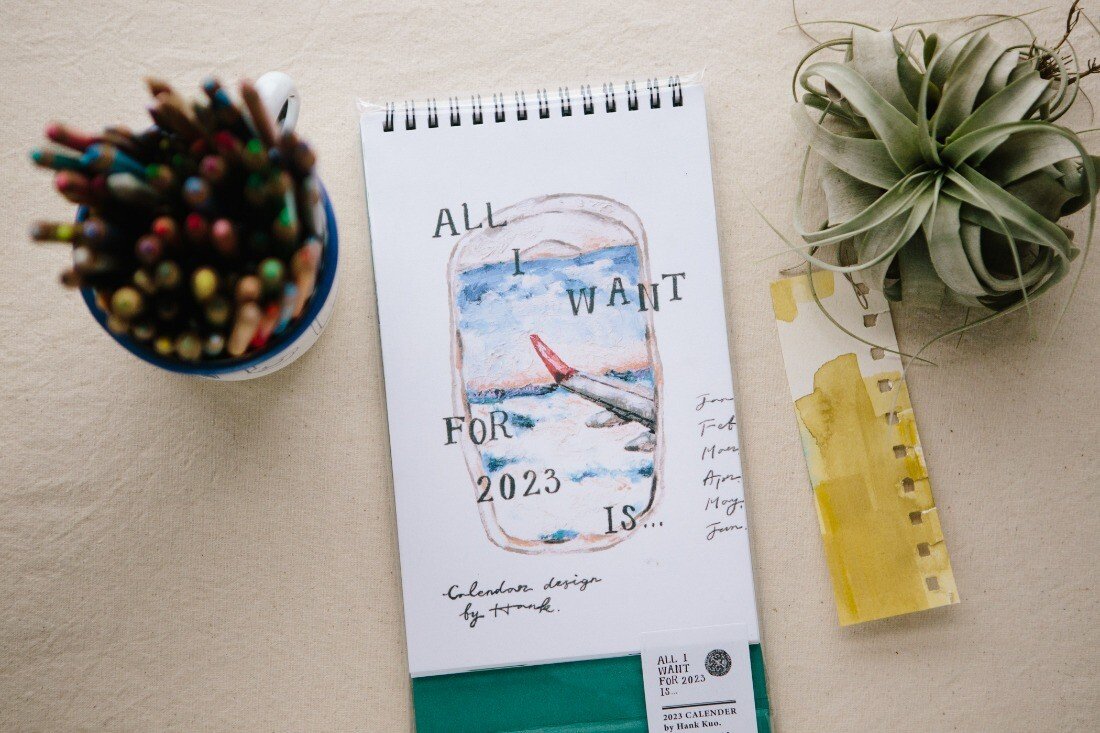 ALL
I
WANT
FOR
2023
IS...
Jan
Feb
Mar
Apr.
May.
Jun.
Calendar design
by Hank.
ALL I
WANT
FOR 2023
IS...
2023 CALENDER
by Hank Kuo.